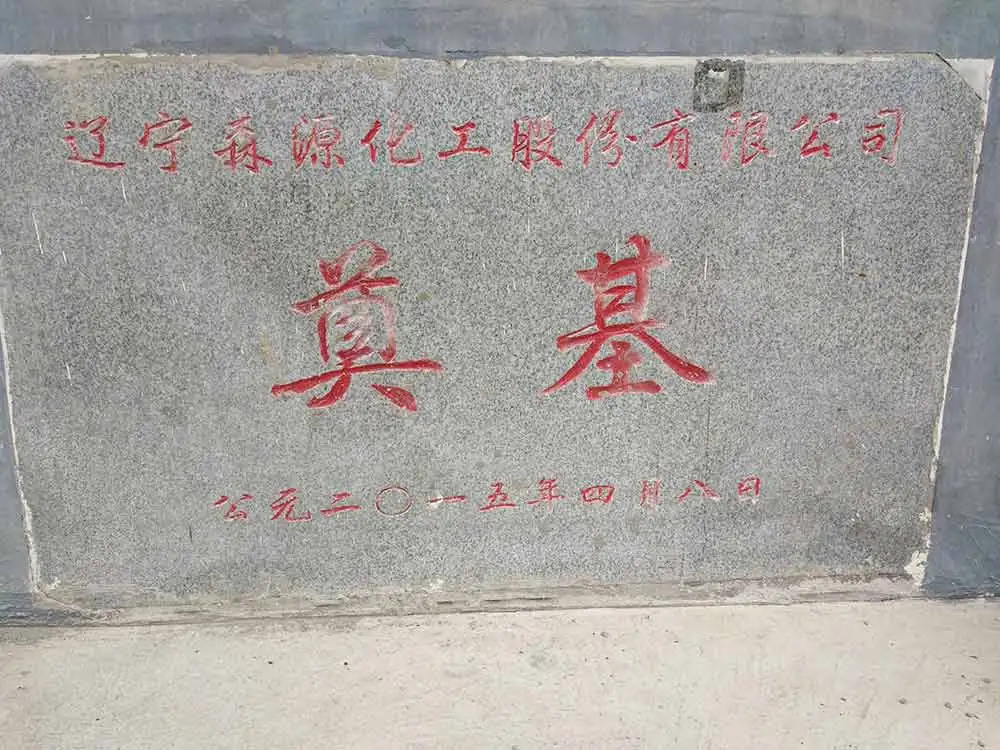 辽宁森源化工股份有限公司
奠基
公元二〇一五年四月八日